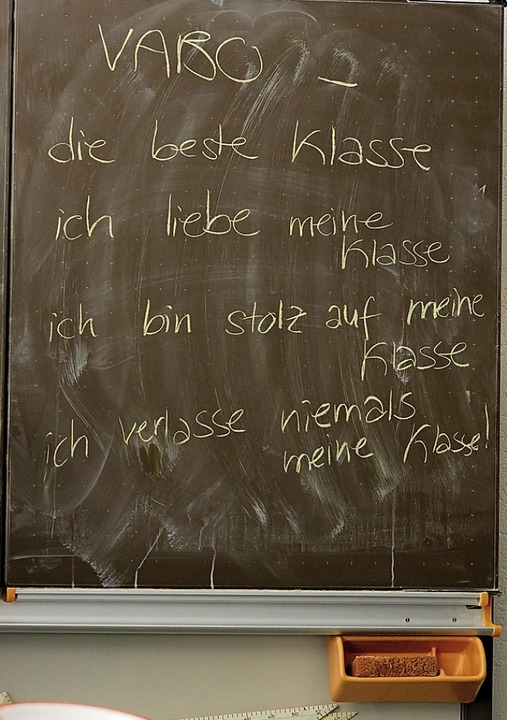 VABO –
die beste Klasse
ich liebe meine
Klasse
ich bin stolz auf meine
Klasse
ich verlasse niemals
meine Klasse!